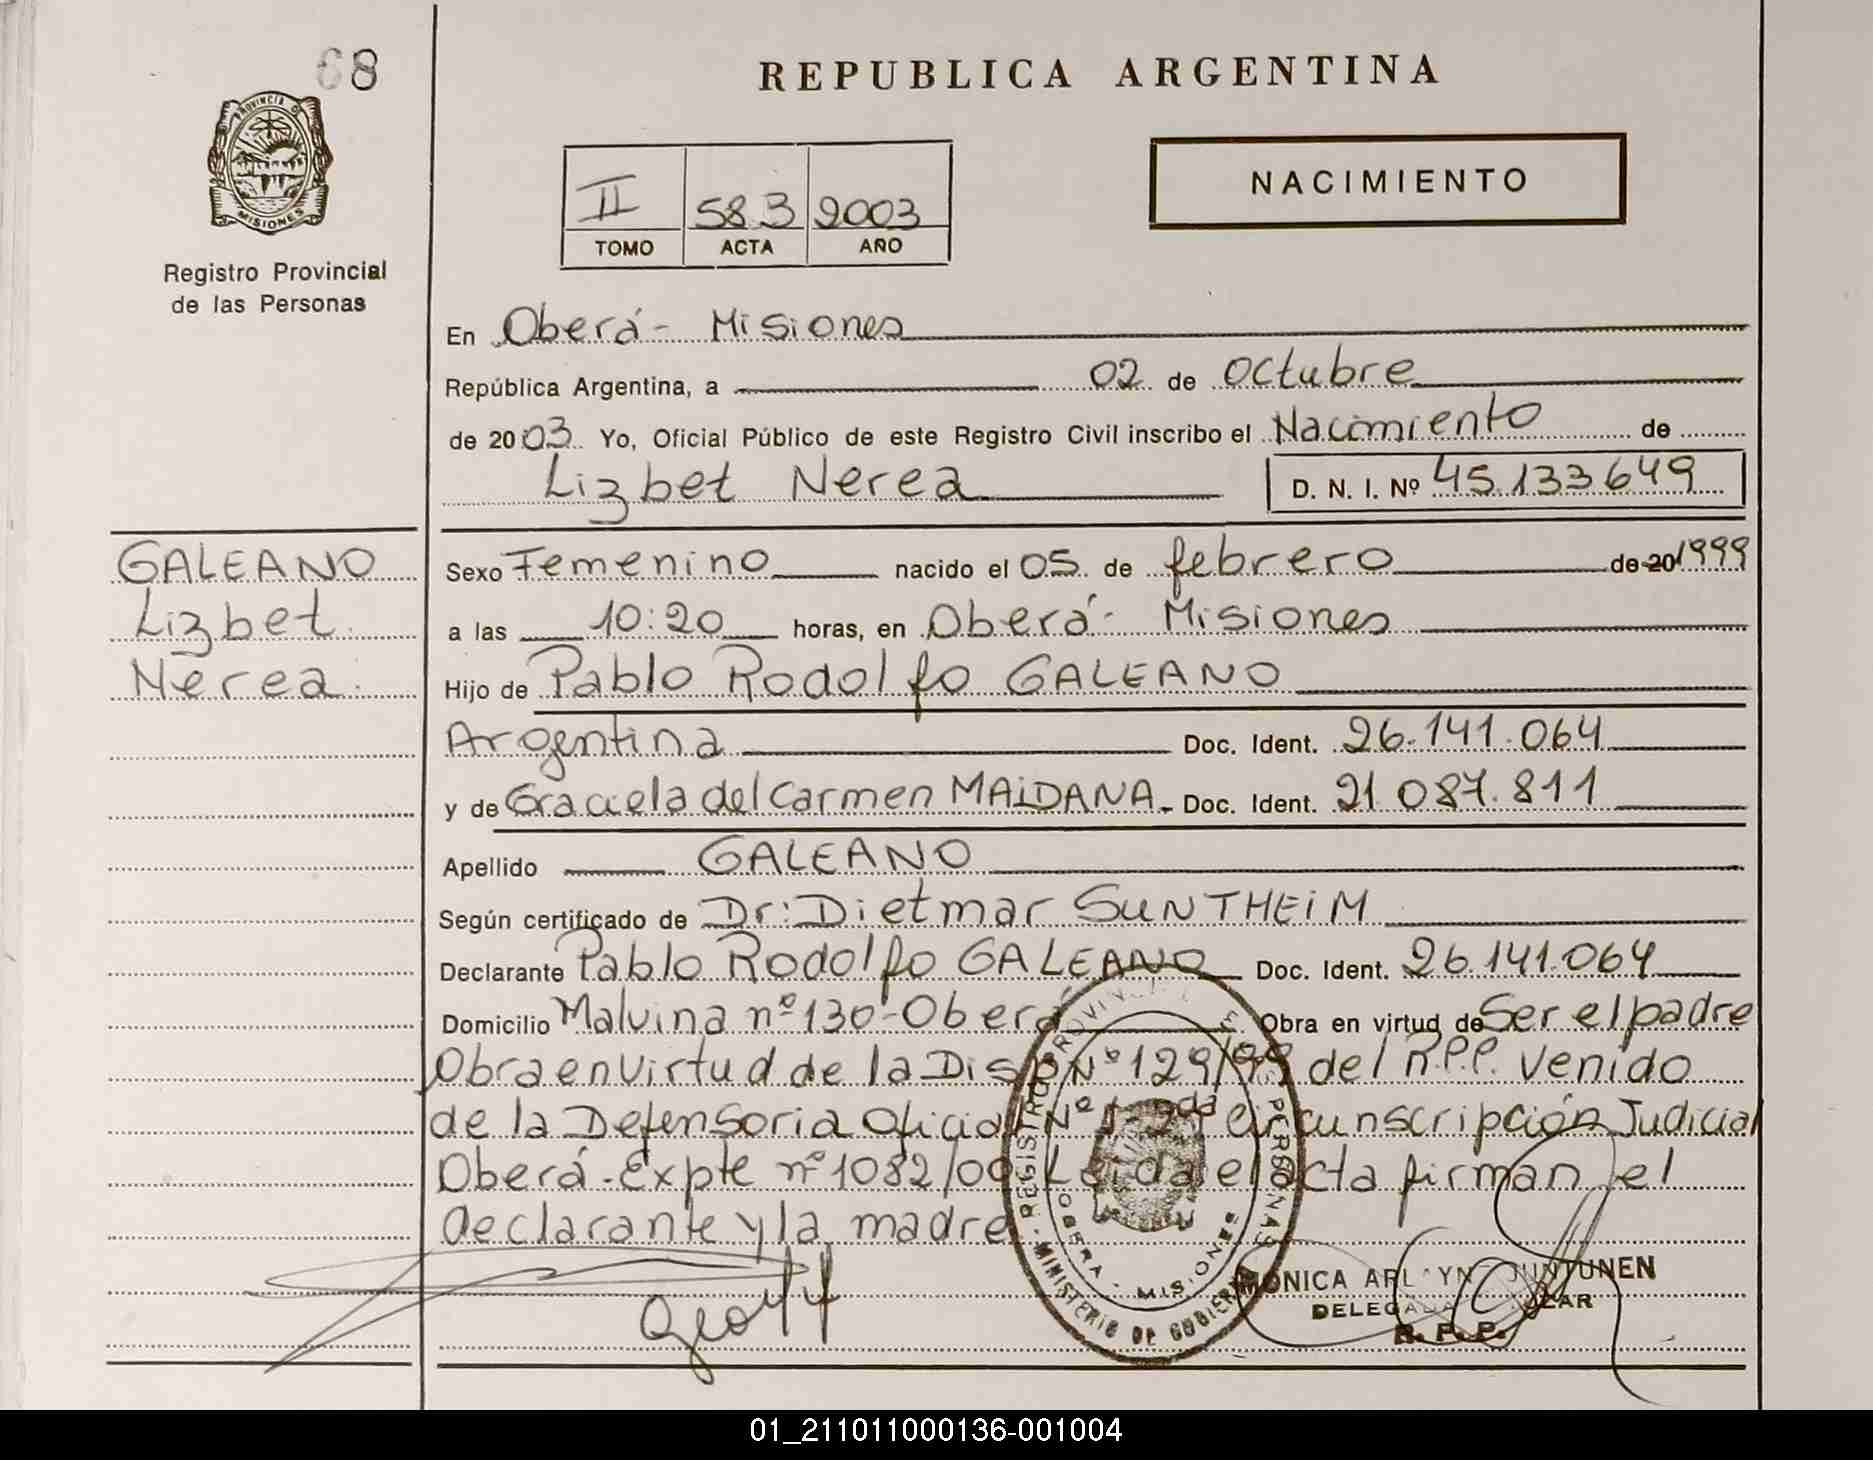 68
REPUBLICA ARGENTINA
PROVINCIA DE
MISIONES
Registro Provincial
de las Personas
II 583 2003
TOMO ACTA AÑO
NACIMIENTO
En Oberá - Misiones
República Argentina, a 02 de Octubre
de 2003 Yo, Oficial Público de este Registro Civil inscribo el Nacimiento de
Lizbet Nerea D. N. I. Nº 45.133.649
GALEANO
Lizbet
Nerea
Sexo Femenino nacido el 05 de febrero de 20 1999
a las 10:20 horas, en Oberá - Misiones
Hijo de Pablo Rodolfo GALEANO
Argentina Doc. Ident. 26.141.064
y de Graciela del Carmen MAIDANA - Doc. Ident. 21.087.811
Apellido GALEANO
Según certificado de Dr: Dietmar SUNTHEIM
Declarante Pablo Rodolfo GALEANO Doc. Ident. 26.141.064
Domicilio Malvina nº 130 - Oberá Obra en virtud de Ser el padre
Obra en virtud de la Disp Nº 129/99 del R.P.P. venido
de la Defensoria Oficial Nº 1- 2da circunscripción Judicial
Oberá - Expte nº 1082/00 Leida el acta firman el
declarante y la madre
REGISTRO PROVINCIAL PERSONAS
OBERA - MISIONES
MINISTERIO DE GOBIERNO
MONICA JUNTUNEN
R. P. P.
01_211011000136-001004